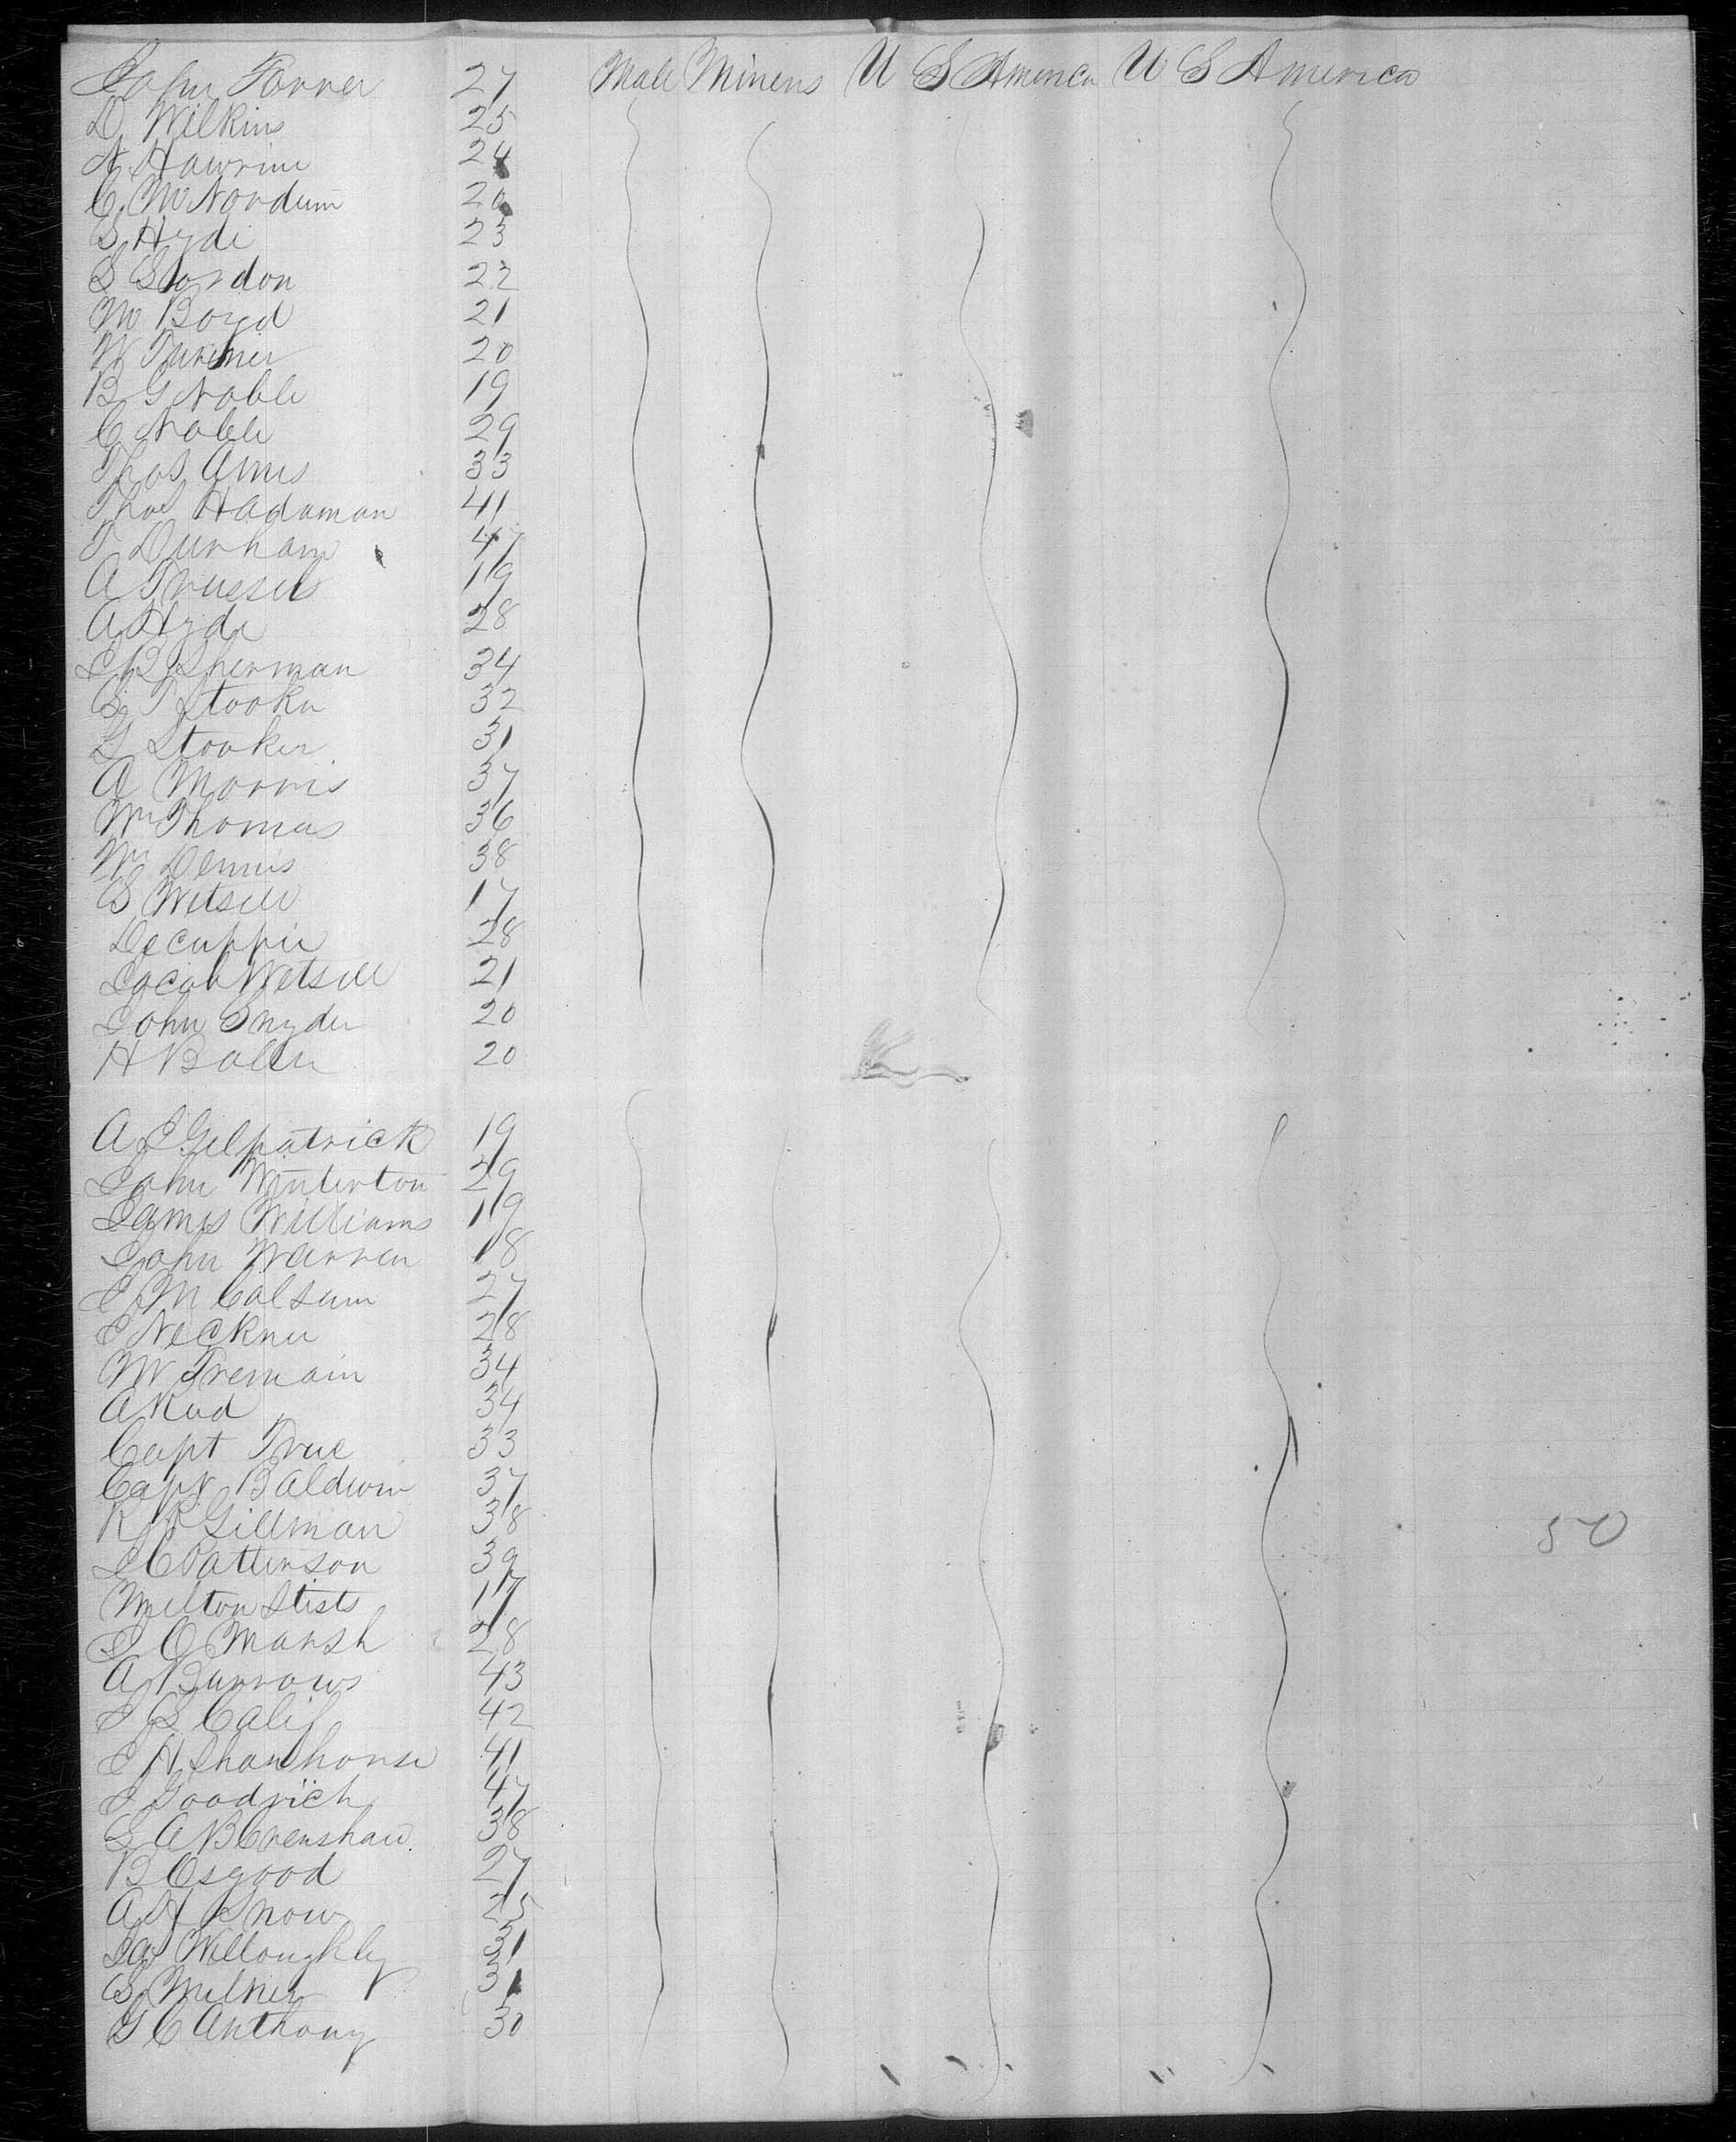 John Forrer 27 Male Miners U S America U S America
D Wilkins 25
N Hawrim 24
C. McNordum 20
S Hyde 23
S Slordon 22
M Boyd 21
W Turener 20
B G Noble 19
C Noble 29
Thos Amis 33
Thos Hadaman 41
T Durham 47
A Trussel 19
A Hyde 28
J B Sherman 34
C T Stooker 32
G Stooker 31
A Morris 37
Wm Thomas 36
Wm Dennis 38
S Wetsell 17
Decuppir 28
Jacob Wetsell 21
John Snyder 20
H Boller 20
A J Gilpatrick 19
John Winterton 29
James Williams 19
John Warren 18
J M Colsum 27
J Neckner 28
W Tremain 34
A Rud 34
Capt True 33
Capt Baldwin 37
R P Gillman 38
J C Patterson 39
Milton Stists 17
J O Marsh 28
A Burrows 43
J S Calif 42
J H Shawhonse 41
J Goodrich 47
L A B Crenshaw 38
B Osgood 27
A H Snow 25
Jas Willoughby 31
S Milner 31
G C Anthony 30
50